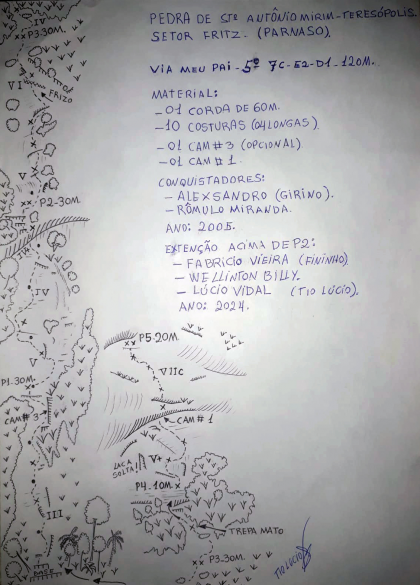 PEDRA DE STº ANTÔNIO MIRIM - TERESÓPOLIS
SETOR FRITZ - (PARNASO).
VIA MEU PAI - 5º 7C - E2 - D1 - 120M.
MATERIAL:
- 01 CORDA DE 60M.
- 10 COSTURAS (04 LONGAS)
- 01 CAM #3 (OPCIONAL)
- 01 CAM #1.
CONQUISTADORES:
- ALEXSANDRO (GIRINO).
- RÔMULO MIRANDA.
ANO: 2005.
EXTENÇÃO ACIMA DE P2:
- FABRICIO VIEIRA (FININHO)
- WELLINTON BILLY.
- LÚCIO VIDAL (TIO LÚCIO).
ANO: 2024.
IV
P3.30M.
VI
FRIZO
V
P2-30M.
IV
V
P1.30M.
CAM#3
III
BASE
P5.20M.
VIIC
CAM#1
LACA
SOLTA!!
V+
P4.10M.
TREPA MATO
P3.30M.
TIO LUCIO